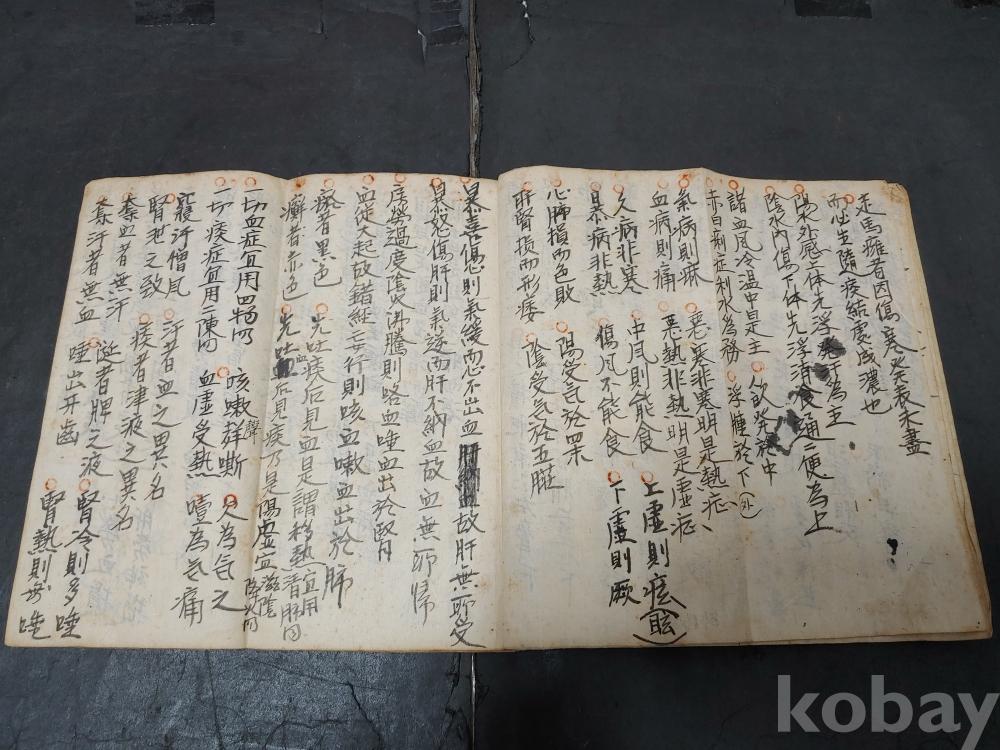 走馬癰者因傷寒火表未盡
而必生隨痰結處成濃也
陽邪外感上体先浮發汗為主
陰邪內傷下体先浮消食通二便為上
諸血風冷温中是主 飲発於中
赤白剤症利水為務 浮腫於下(外)
氣病則麻 惡寒非寒明是熱症
血病則痛 惡熱非熱明是虛症
久病非寒 中風則能食 上虛則痃(眩)
暴病非熱 傷風不能食 下虛則厥
心肺損而色敗 陽受気於四末
肝腎損而形痿 陰受気於五臟
暴喜傷心則氣緩而心不出血故肝無所受
暴怒傷肝則氣逆而肝不納血故血無所帰
房勞過度陰火沸騰則咯血唾血出於腎
血從火起故錯經妄行則咳血嗽血出於肺
瘀者黑色 先吐痰后見血是謂移熱宜用
癬者赤色 先吐血后見痰乃是陽虛宜滋陰降火
一切血症宜用四物 咳嗽群嘶聲 久為気之
一切痰症宜用二陳 血虛受熱 噎為気痛
寢汗僧凡 汗者血之異名
腎老之致 痰者津液之異名 腎冷則多唾
奪血者無汗 涎者脾之液 腎熱則唾
奪汗者無血 唾出牙齒
kobay